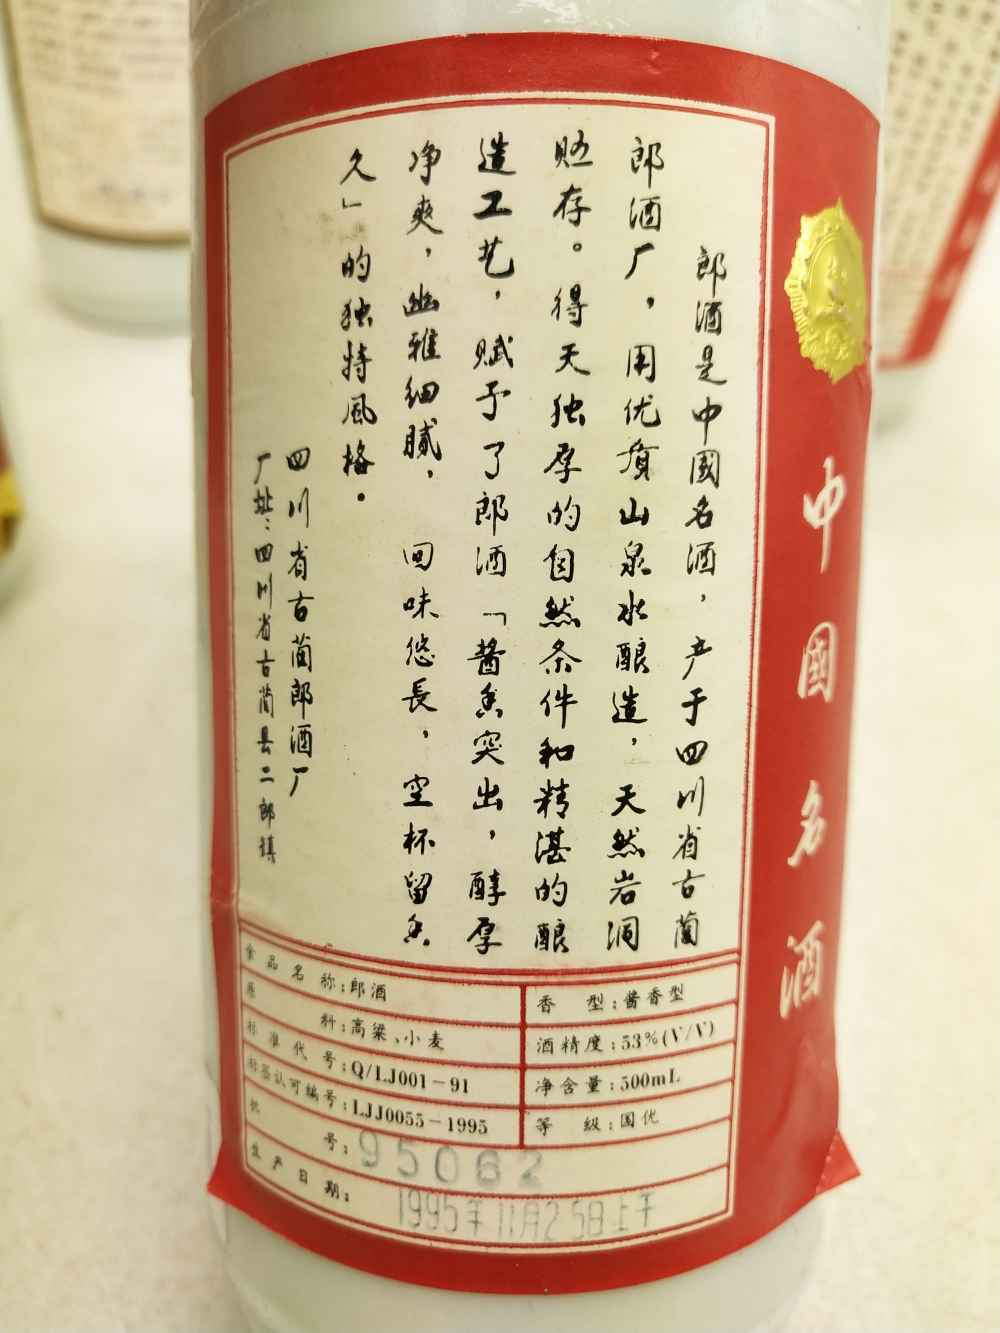 中國名酒
郎酒是中國名酒，产于四川省古蔺
郎酒厂，用优质山泉水酿造，天然岩洞
贮存。得天独厚的自然条件和精湛的酿
造工艺，赋予了郎酒「酱香突出，醇厚
净爽，幽雅细腻，回味悠長，空杯留香
久」的独特風格。
四川省古蔺郎酒厂
厂址：四川省古蔺县二郎镇
食品名称：郎酒
香型：酱香型
原料：高粱、小麦
酒精度：53%(V/V)
标准代号：Q/LJ001-91
净含量：500mL
标签认可编号：LJJ0055-1995
等级：国优
批号：95062
生产日期：1995年11月25日上午